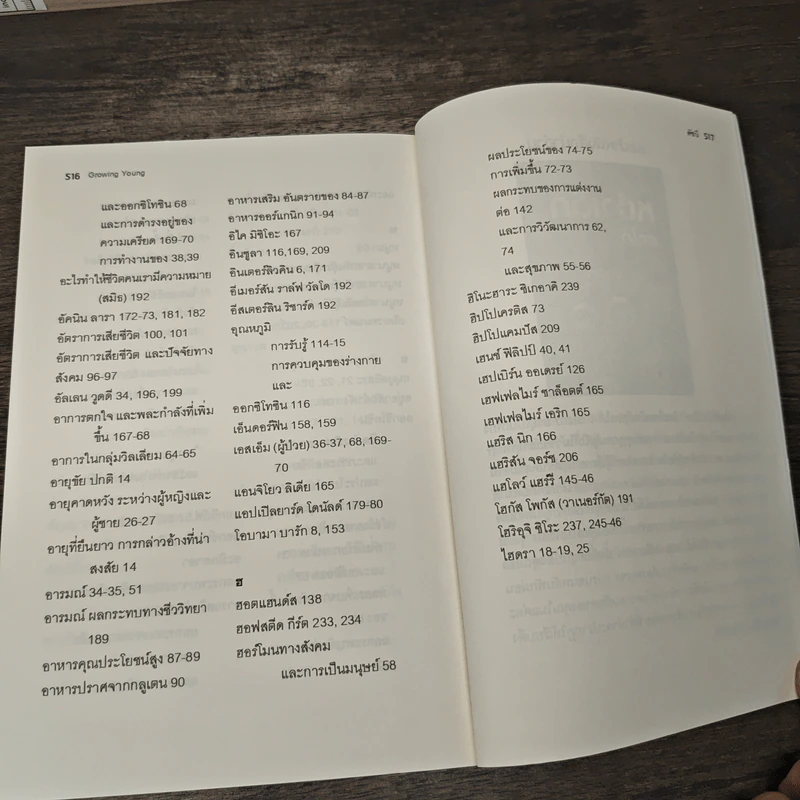 516 Growing Young
และออกซิโทซิน 68
และการดำรงอยู่ของ
ความเครียด 169-70
การทำงานของ 38,39
อะไรทำให้ชีวิตคนเรามีความหมาย
(สมิธ) 192
อัคนิน ลารา 172-73, 181, 182
อัตราการเสียชีวิต 100, 101
อัตราการเสียชีวิต และปัจจัยทาง
สังคม 96-97
อัลเลน วูดดี 34, 196, 199
อาการตกใจ และพละกำลังที่เพิ่ม
ขึ้น 167-68
อาการในกลุ่มวิลเลียม 64-65
อายุขัย ปกติ 14
อายุคาดหวัง ระหว่างผู้หญิงและ
ผู้ชาย 26-27
อายุที่ยืนยาว การกล่าวอ้างที่น่า
สงสัย 14
อารมณ์ 34-35, 51
อารมณ์ ผลกระทบทางชีววิทยา
189
อาหารคุณประโยชน์สูง 87-89
อาหารปราศจากกลูเตน 90
อาหารเสริม อันตรายของ 84-87
อาหารออร์แกนิก 91-94
อิไค มิชิโอะ 167
อินซูลา 116,169, 209
อินเตอร์ลิวคิน 6, 171
อีเมอร์สัน ราล์ฟ วัลโด 192
อีสเตอร์ลิน ริชาร์ด 192
อุณหภูมิ
การรับรู้ 114-15
การควบคุมของร่างกาย
และ
ออกซิโตซิน 116
เอ็นดอร์ฟิน 158, 159
เอสเอ็ม (ผู้ป่วย) 36-37, 68, 169-
70
แอนจิโยว ลิเดีย 165
แอปเปิลยาร์ด โดนัลด์ 179-80
โอบามา บารัก 8, 153
ฮ
ฮอตแฮนด์ส 138
ฮอฟสตีด กีร์ต 233, 234
ฮอร์โมนทางสังคม
และการเป็นมนุษย์ 58
ดัชนี 517
ผลประโยชน์ของ 74-75
การเพิ่มขึ้น 72-73
ผลกระทบของการแต่งงาน
ต่อ 142
และการวิวัฒนาการ 62,
74
และสุขภาพ 55-56
ฮิโนะฮาระ ชิเกอากิ 239
ฮิปโปเครติส 73
ฮิปโปแคมปัส 209
เฮนซ์ ฟิลิปป์ 40, 41
เฮปเบิร์น ออเดรย์ 126
เฮฟเฟลไมร์ ชาล็อตต์ 165
เฮฟเฟลไมร์ เอริก 165
แฮริส นิก 166
แฮริสัน จอร์ช 206
แฮโลว์ แฮร์รี 145-46
โฮกัส โพกัส (วาเนอร์กัต) 191
โฮริอุจิ ชิโร 237, 245-46
ไฮดรา 18-19, 25